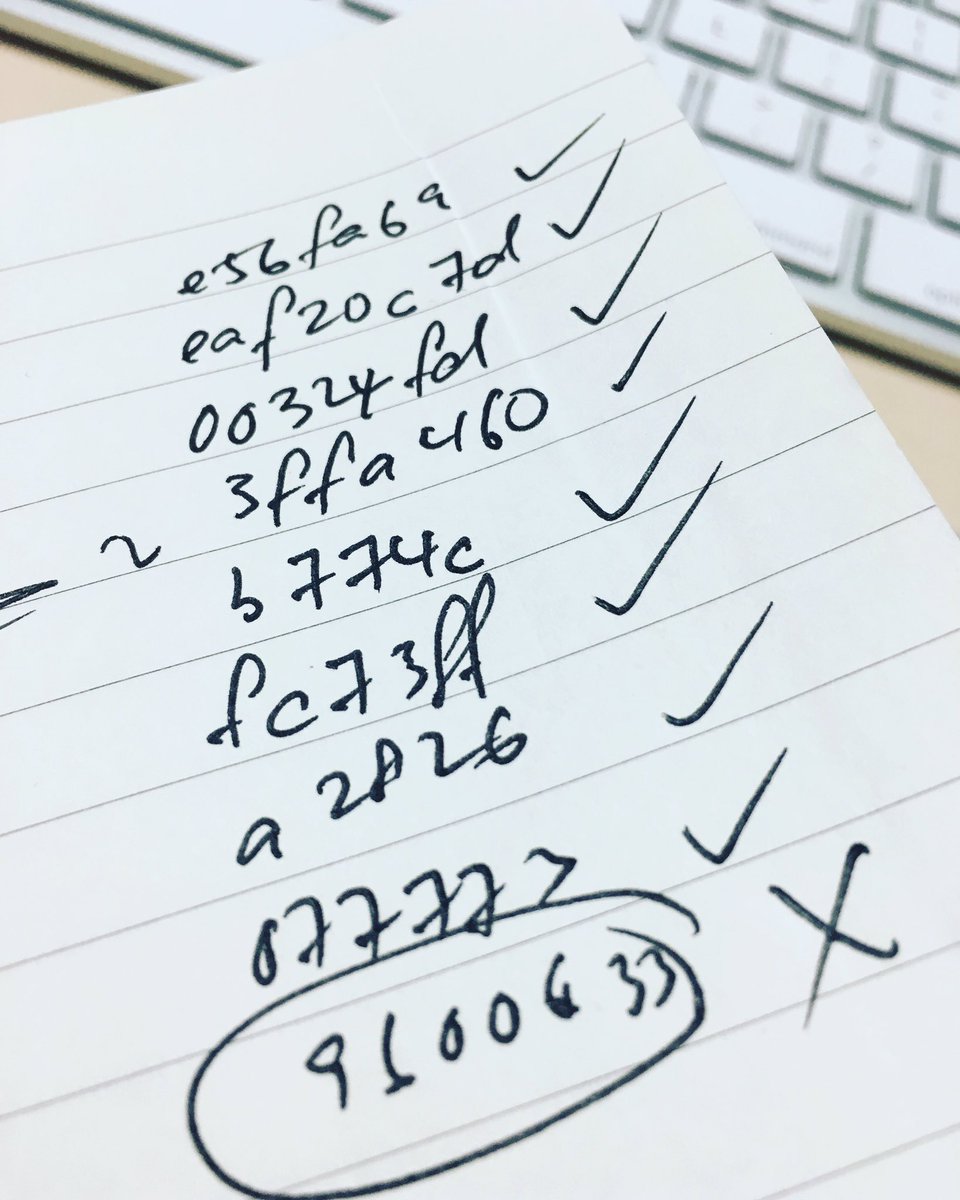 e56fa69 ✓
eaf20c7d ✓
00324fd ✓
3ffa460 ✓
~ b774c ✓
fc73ff ✓
a2826 ✓
077777 ✓
X